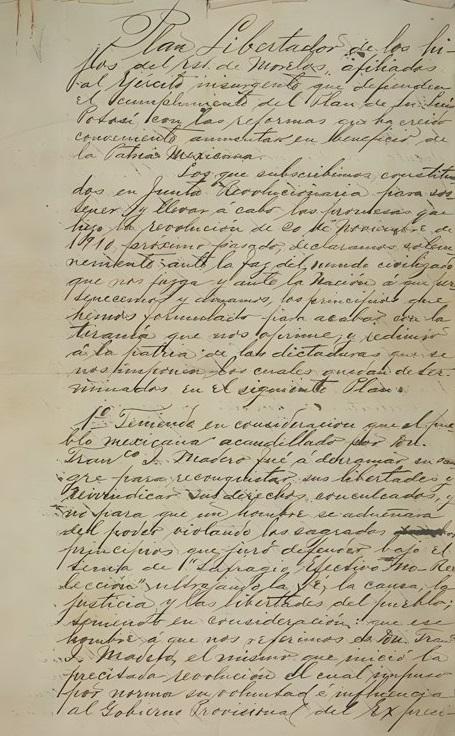 Plan Libertador de los hi-
jos del Est. de Morelos, afiliados
al Ejército insurgente que defienden
el cumplimiento del Plan de San Luis
Potosí con las reformas que ha creido
conveniente aumentar en beneficio de
la Patria Mexicana.
Los que subscribimos, constitui-
dos en Junta Revolucionaria para sos-
tener y llevar á cabo las promesas que
hizo la revolución de 20 de Noviembre de
1910, próximo pasado, declaramos solem-
nemente ante la faz del mundo civilizado
que nos juzga y ante la Nación á que per-
tenecemos y amamos, los principios que
hemos formulado para acabar con la
tiranía que nos oprime y redimir
á la patria de las dictaduras que se
nos imponen los cuales quedan deter-
minados en el siguiente Plan.
1º. Teniendo en consideración que el pue-
blo mexicano acaudillado por Dn.
Franco I. Madero fué á derramar su san-
gre para reconquistar sus libertades y
reivindicar sus derechos conculcados, y
no para que un hombre se adueñara
del poder violando los sagrados
principios que juró defender bajo el
lema de "Sufragio Efectivo" "No Ree-
lección" ultrajando la fé, la causa, la
justicia y las libertades del pueblo;
teniendo en consideración: que ese
hombre á que nos referimos es Dn. Fran.
I. Madero, el mismo que inició la
precitada revolución el cual impuso
por norma su voluntad é influencia
al Gobierno Provisional del Ex Presi-